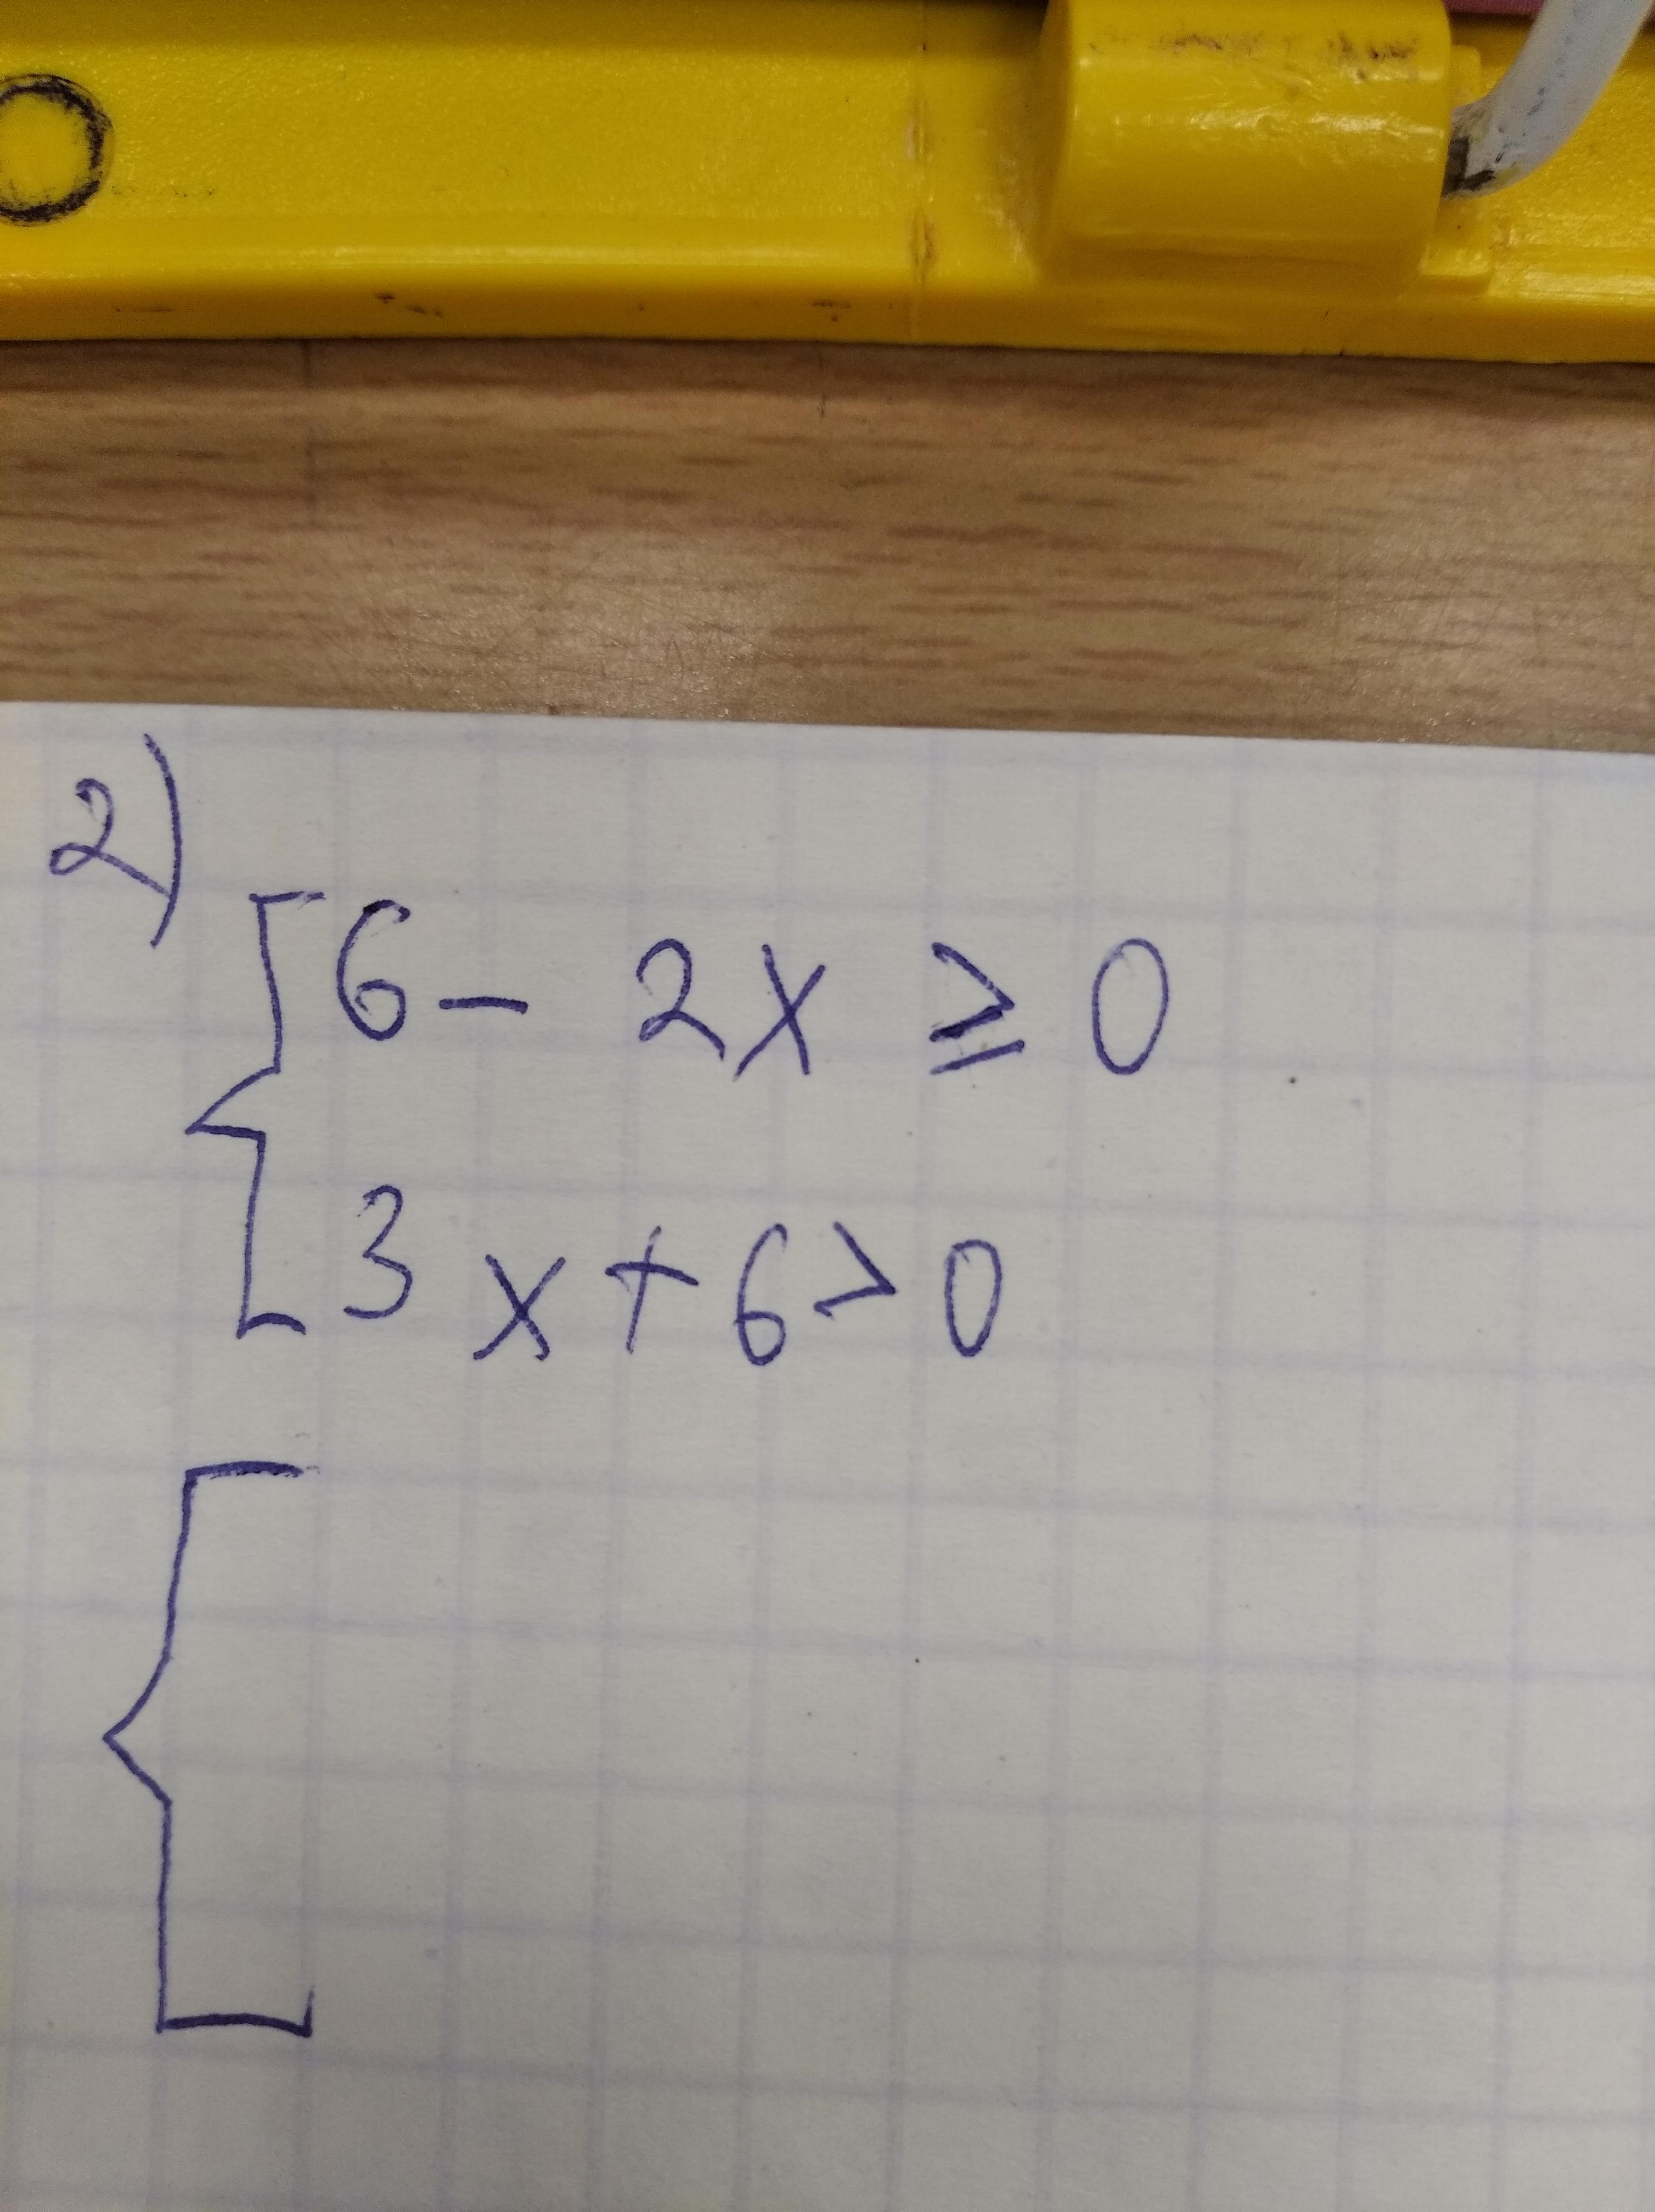 2)
6 - 2x ≥ 0
3x + 6 > 0